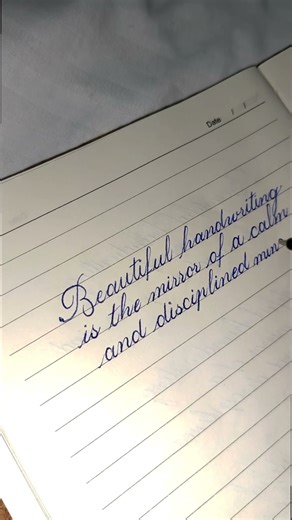 Date: / /
Beautiful handwriting
is the mirror of a calm
and disciplined min